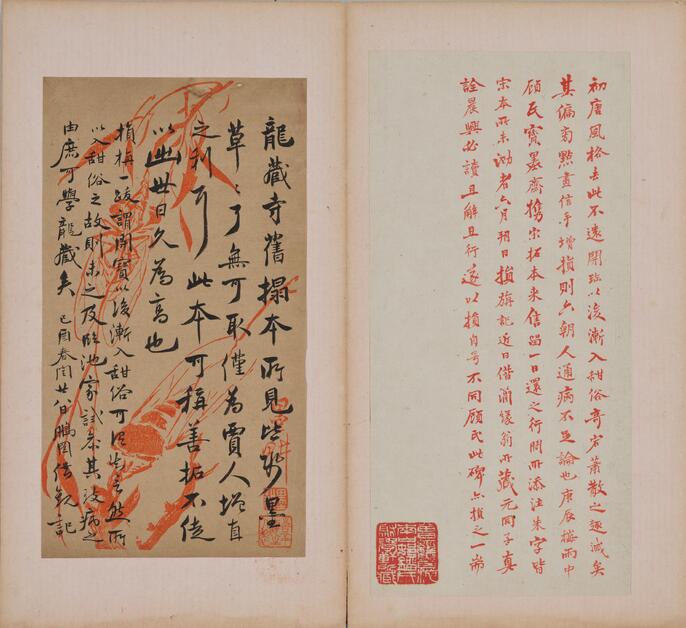 初唐風格去此不遠開臨以後漸入甜俗奇宕蕭散之趣減矣
其偏旁點畫信手增損則六朝人通病不足論也庚辰梅雨中
顧民寶墨齋攜宋拓本來借留一日還之行間所添注朱字皆
宋本所未泐者六月朔日損旃記近日借蘭緣翁所藏元冏子真
詮晨興必讀且解且行遂以損自号不同顧民此碑亦損之一端
龍藏寺舊搨本所見皆紗墨
草草了無可取僅為賈人增直
之利耳此本可稱善拓不徒
以幽世日久為高也
損栴一跋謂開寶以後漸入甜俗可謂知言然所
以入甜俗之故則未之及臨池家試參其故病之
由庶可學龍藏矣 己酉春閏廿八日 借觀記